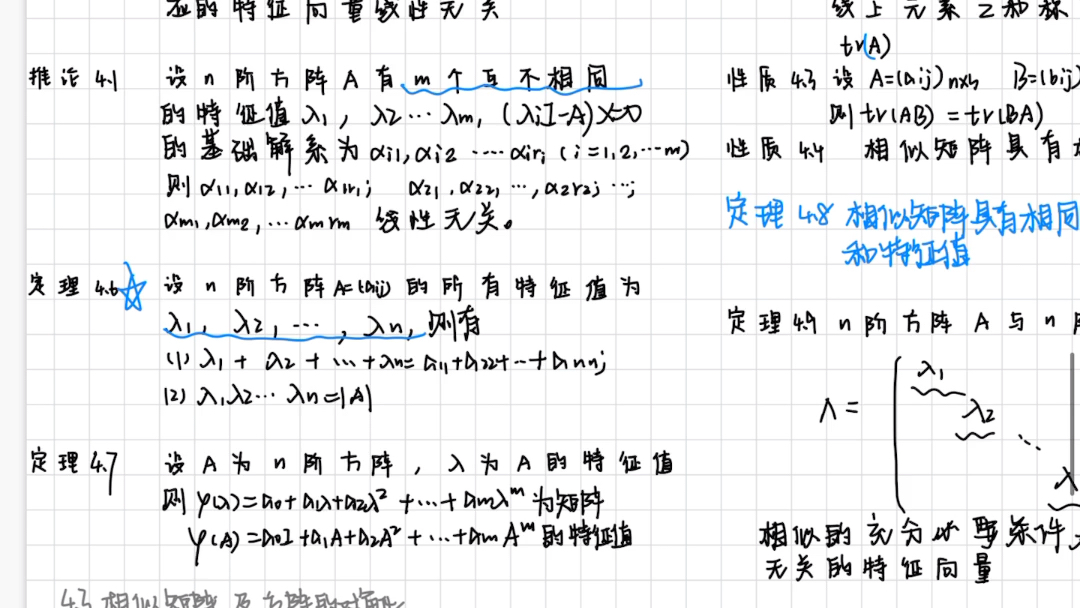 应的特征向量线性无关
推论4.1 设n阶方阵A有m个互不相同
的特征值λ1, λ2…λm, (λiI-A)X=0
的基础解系为αi1,αi2…αiri (i=1,2,…m)
则α11,α12,…α1r1; α21,α22,…,α2r2;…;
αm1,αm2,…αmrm 线性无关。
定理4.6☆ 设n阶方阵A=(aij)的所有特征值为
λ1, λ2, …, λn, 则有
(1) λ1+λ2+…+λn=a11+a22+…+ann;
(2) λ1λ2…λn=|A|
定理4.7 设A为n阶方阵, λ为A的特征值
则φ(λ)=a0+a1λ+a2λ²+…+amλ^m为矩阵
φ(A)=a0I+a1A+a2A²+…+amA^m的特征值
4.3 相似矩阵及
线上元素之和称
tr(A)
性质4.3 设 A=(aij)n×n B=(bij)
则tr(AB)=tr(BA)
性质4.4 相似矩阵具有
定理4.8 相似矩阵具有相同
和特征值
定理4.9 n阶方阵A与n
λ1
Λ= λ2
…
λ
相似的充分必要条件
无关的特征向量